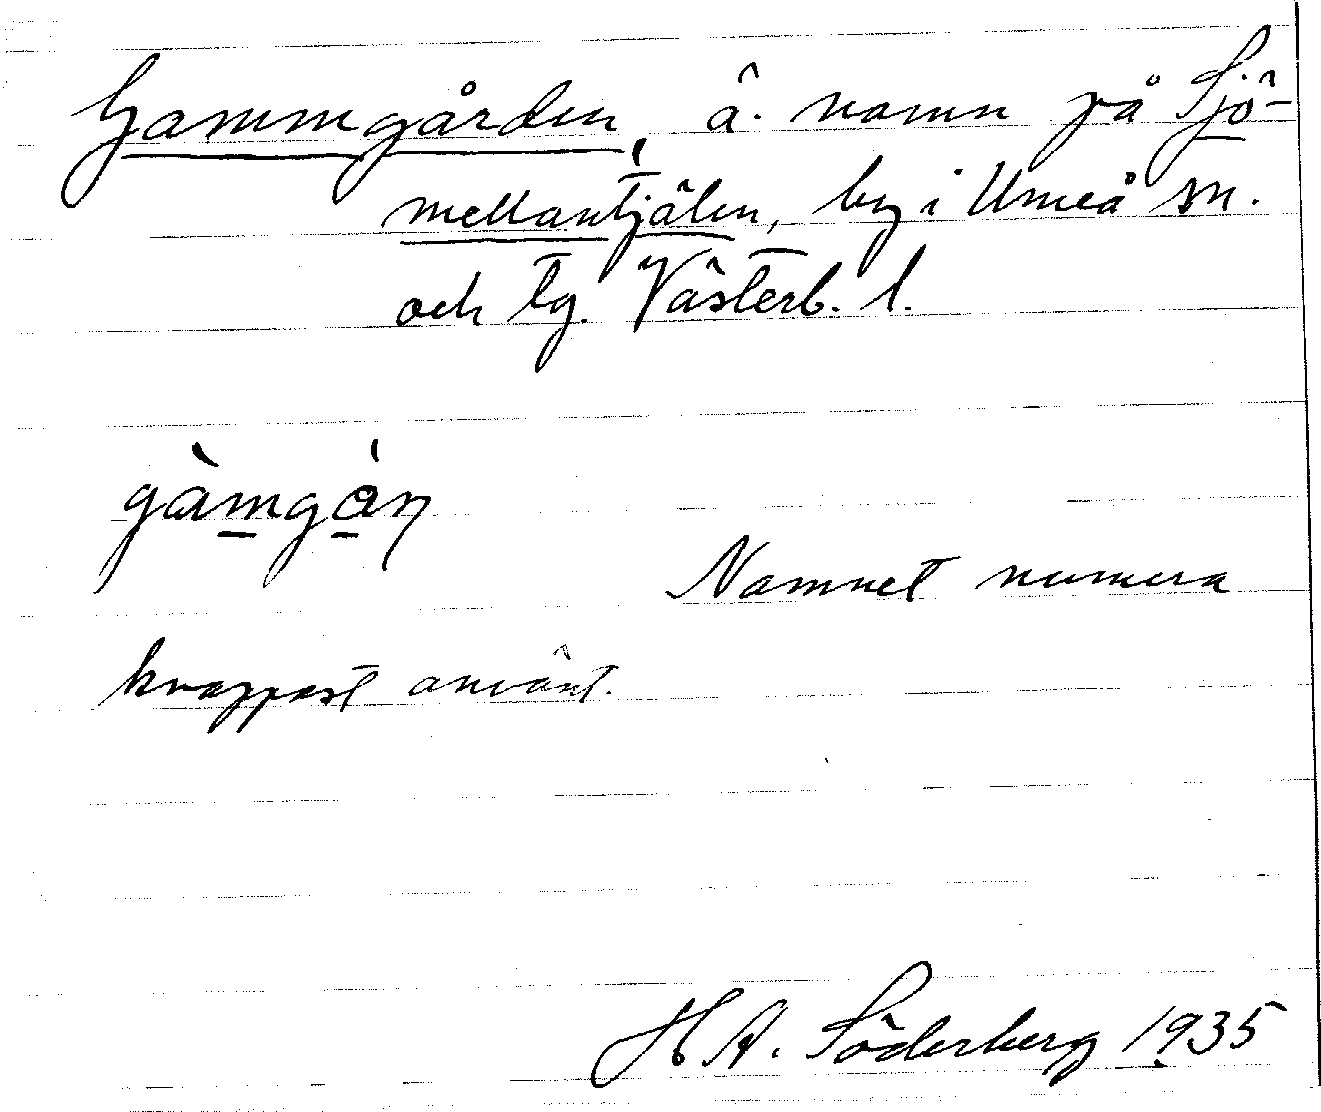 Gammgården, ä. namn på Sjö-
mellantjälen, by i Umeå sn.
och tg. Västerb. l.
gàmgån
Namnet numera
knappast använt.
H A. Söderberg 1935